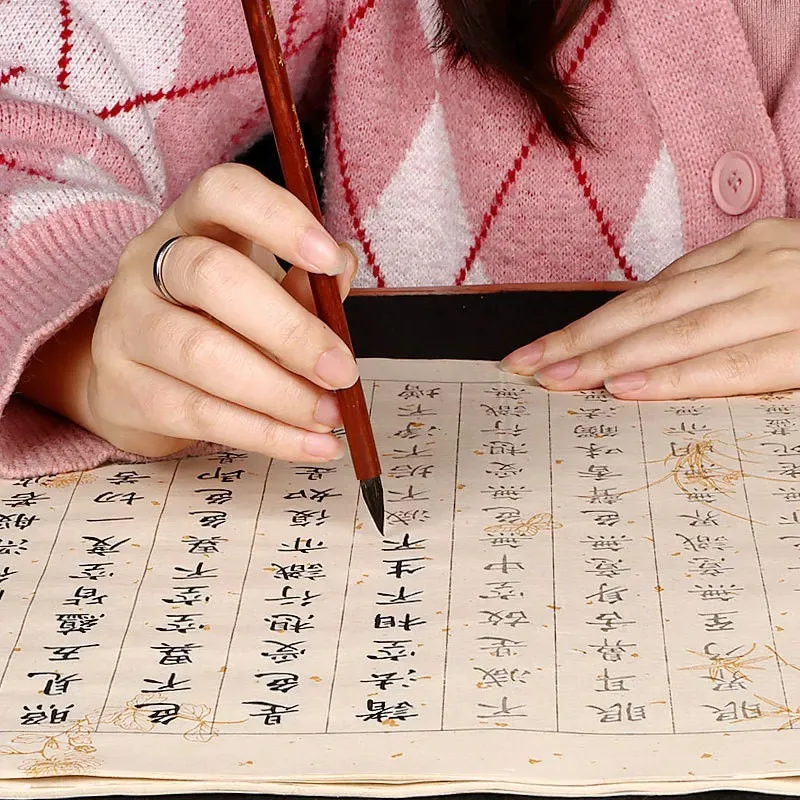 行深般若
照見五蘊皆空度一切苦
色不異空空不異色色即
是色受想行識亦復如
諸法空相不生不滅不垢不淨不增
不減是故空中無色無受想行識無
眼耳鼻舌身意無色聲香味觸法
眼界乃至無意識界無無明亦無
老死